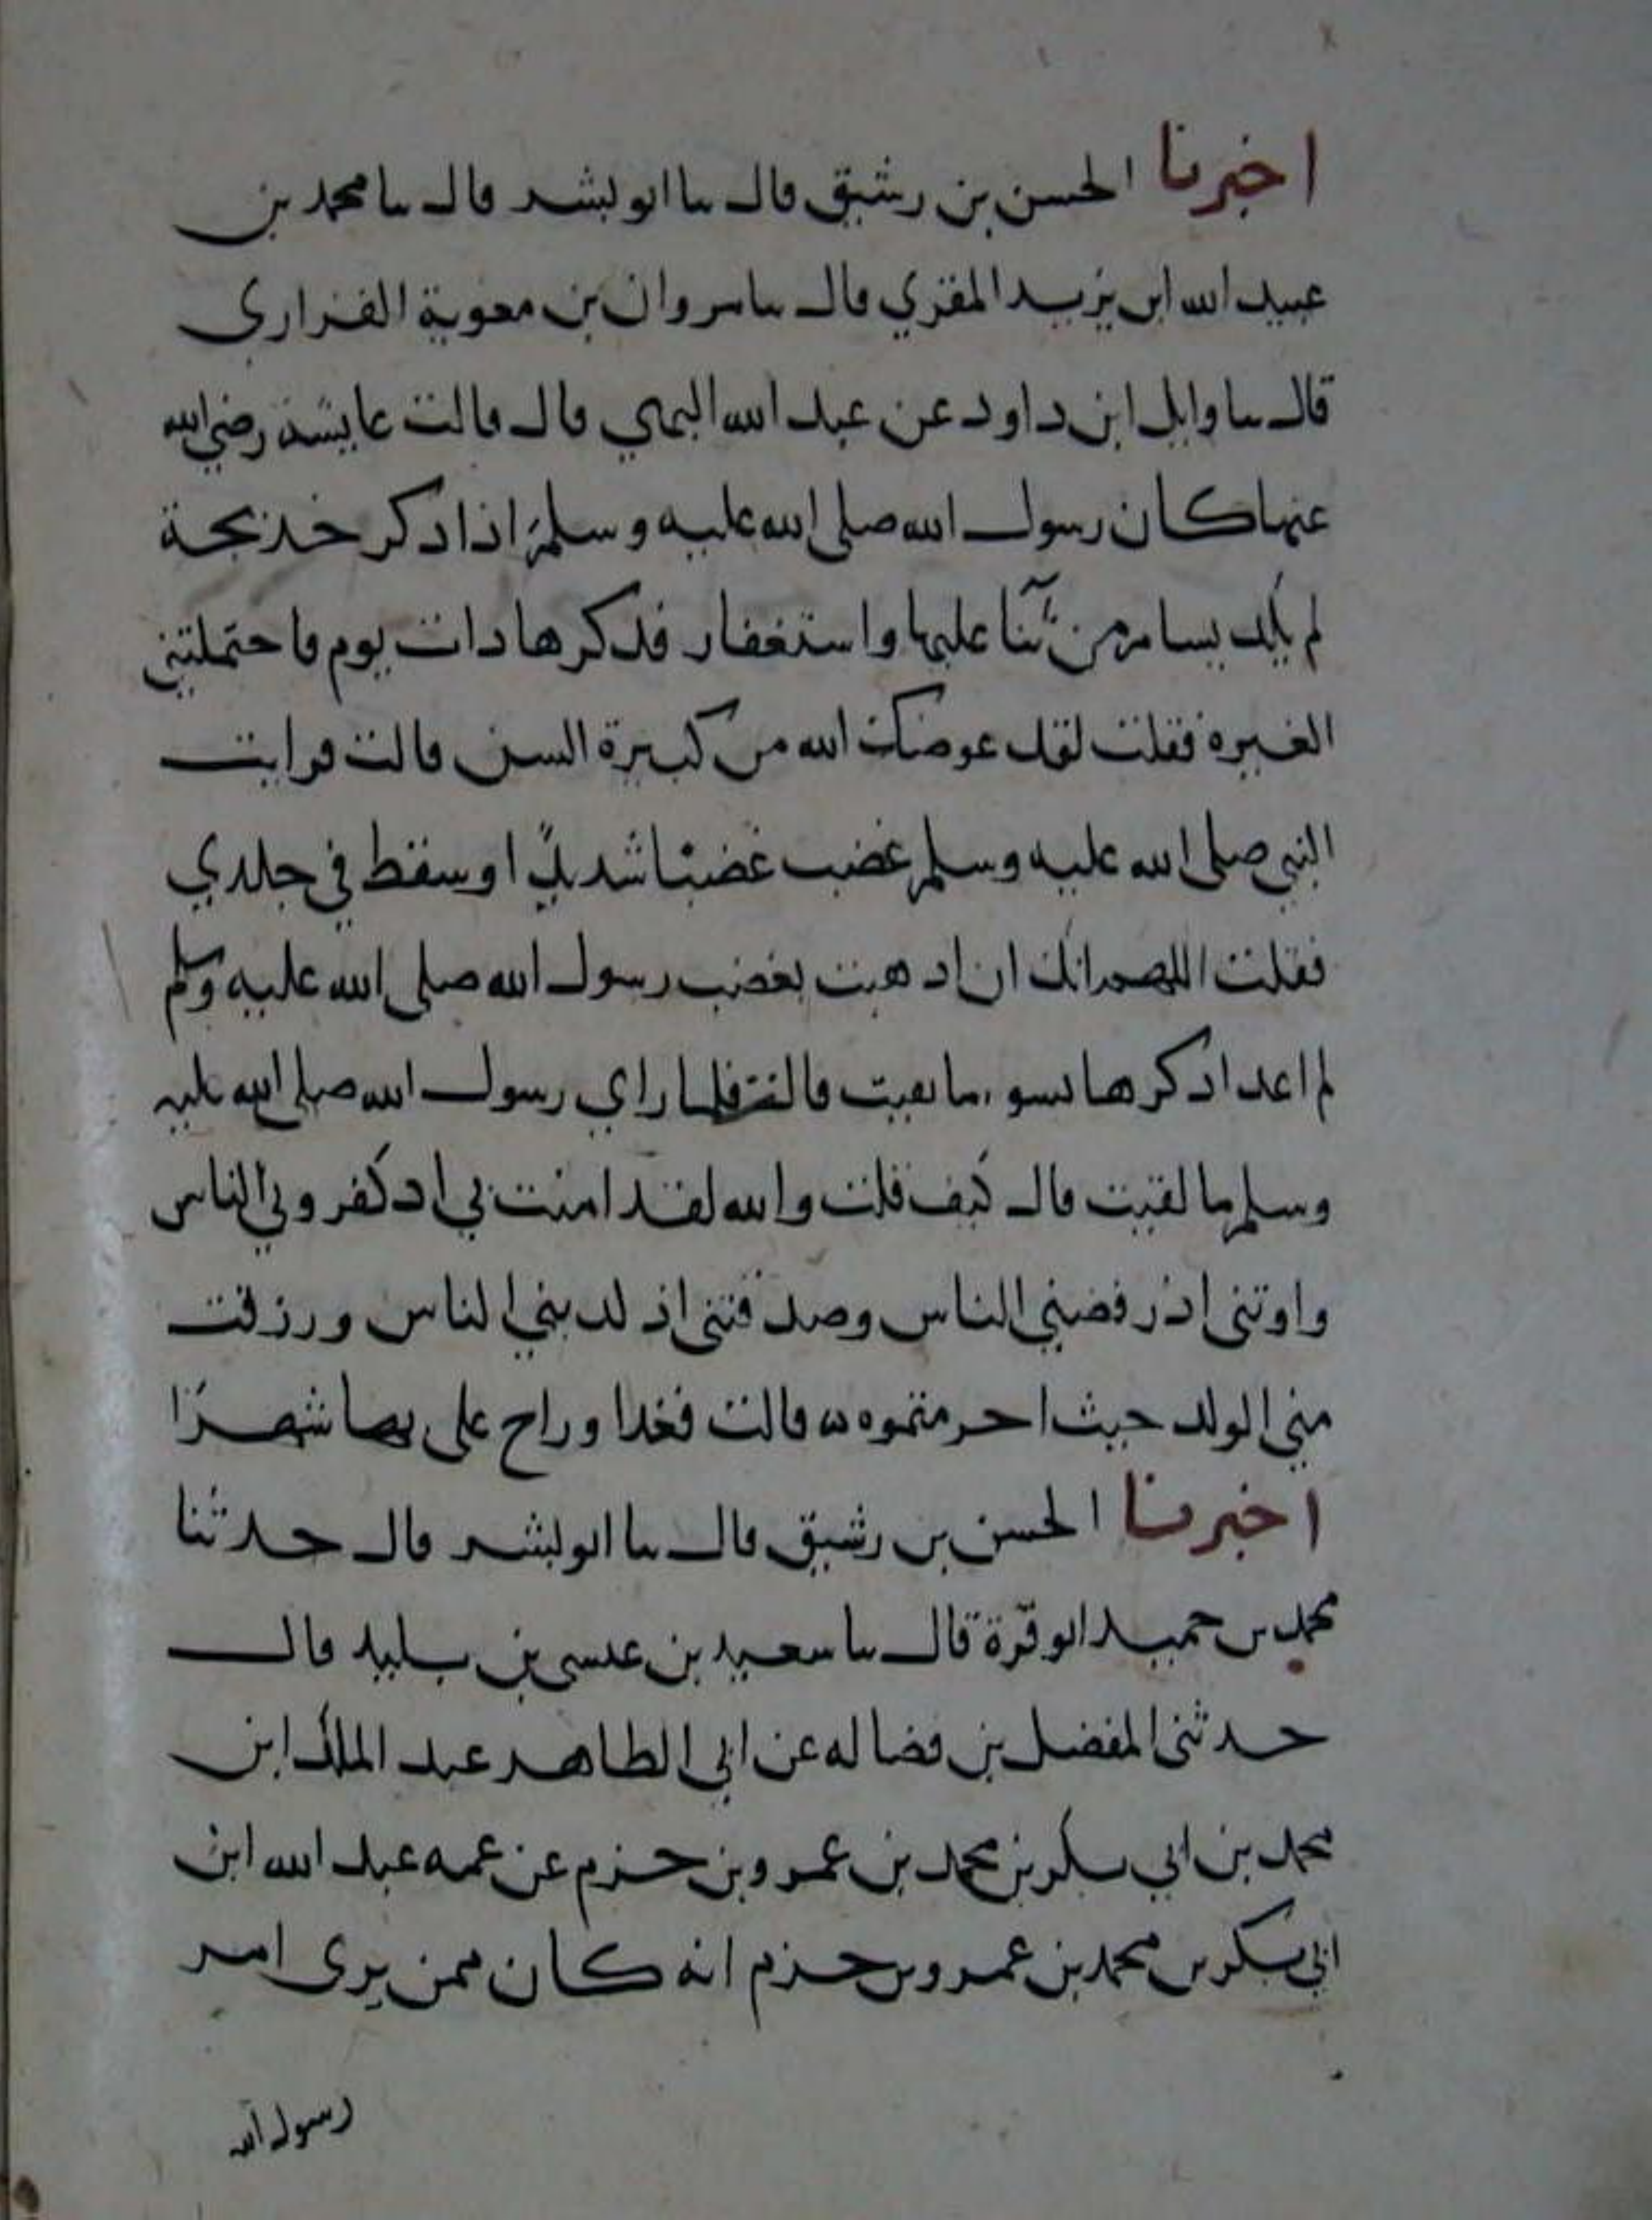 اخبرنا الحسن بن رشيق قال سا ابو بشر قال سا محمد بن
عبيد الله ابن يزيد المقري قال سا مروان بن معوية الفزاري
قال سا وايل ابن داود عن عبد الله البهي قال قالت عايشة رضي الله
عنها كان رسول الله صلى الله عليه وسلم اذا ذكر خديجة
لم يكد يسام من ثنآ عليها واستغفار فذكرها ذات يوم فاحتملتني
الغيرة فقلت لقد عوضك الله من كبيرة السن قالت فرايت
النبي صلى الله عليه وسلم غضب غضبا شديدا وسقط في جلدي
فقلت اللهم انك ان اذهبت بغضب رسول الله صلى الله عليه وسلم
لم اعد اذكرها بسوء ما بقيت قالت فلما راي رسول الله صلى الله عليه
وسلم ما لقيت قال كيف قلت والله لقد امنت بي اذ كفر بي الناس
واوتني اذ رفضني الناس وصدقتني اذ كذبني الناس ورزقت
مني الولد حيث احرمتموه قالت فغدا وراح على بها شهرا
اخبرنا الحسن بن رشيق قال سا ابو بشر قال حدثنا
محمد بن حميد ابو قرة قال سا سعيد بن عيسى بن تليد قال
حدثني المفضل بن فضاله عن ابي الطاهر عبد الملك ابن
محمد بن ابي بكر بن محمد بن عمرو بن حزم عن عمه عبد الله ابن
ابي بكر بن محمد بن عمرو بن حزم انه كان ممن يرى امر
رسول الله